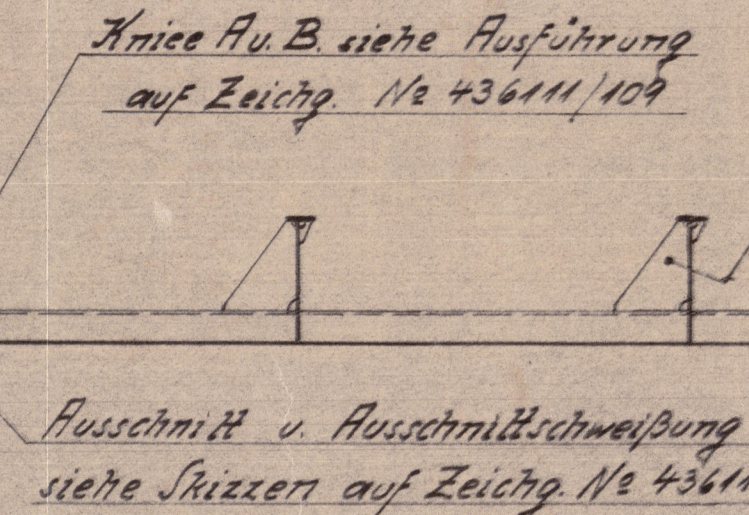 Kniee A u. B. siehe Ausführung
auf Zeichg. № 436111/109
Ausschnitt u. Ausschnittschweißung
siehe Skizzen auf Zeichg. № 43611